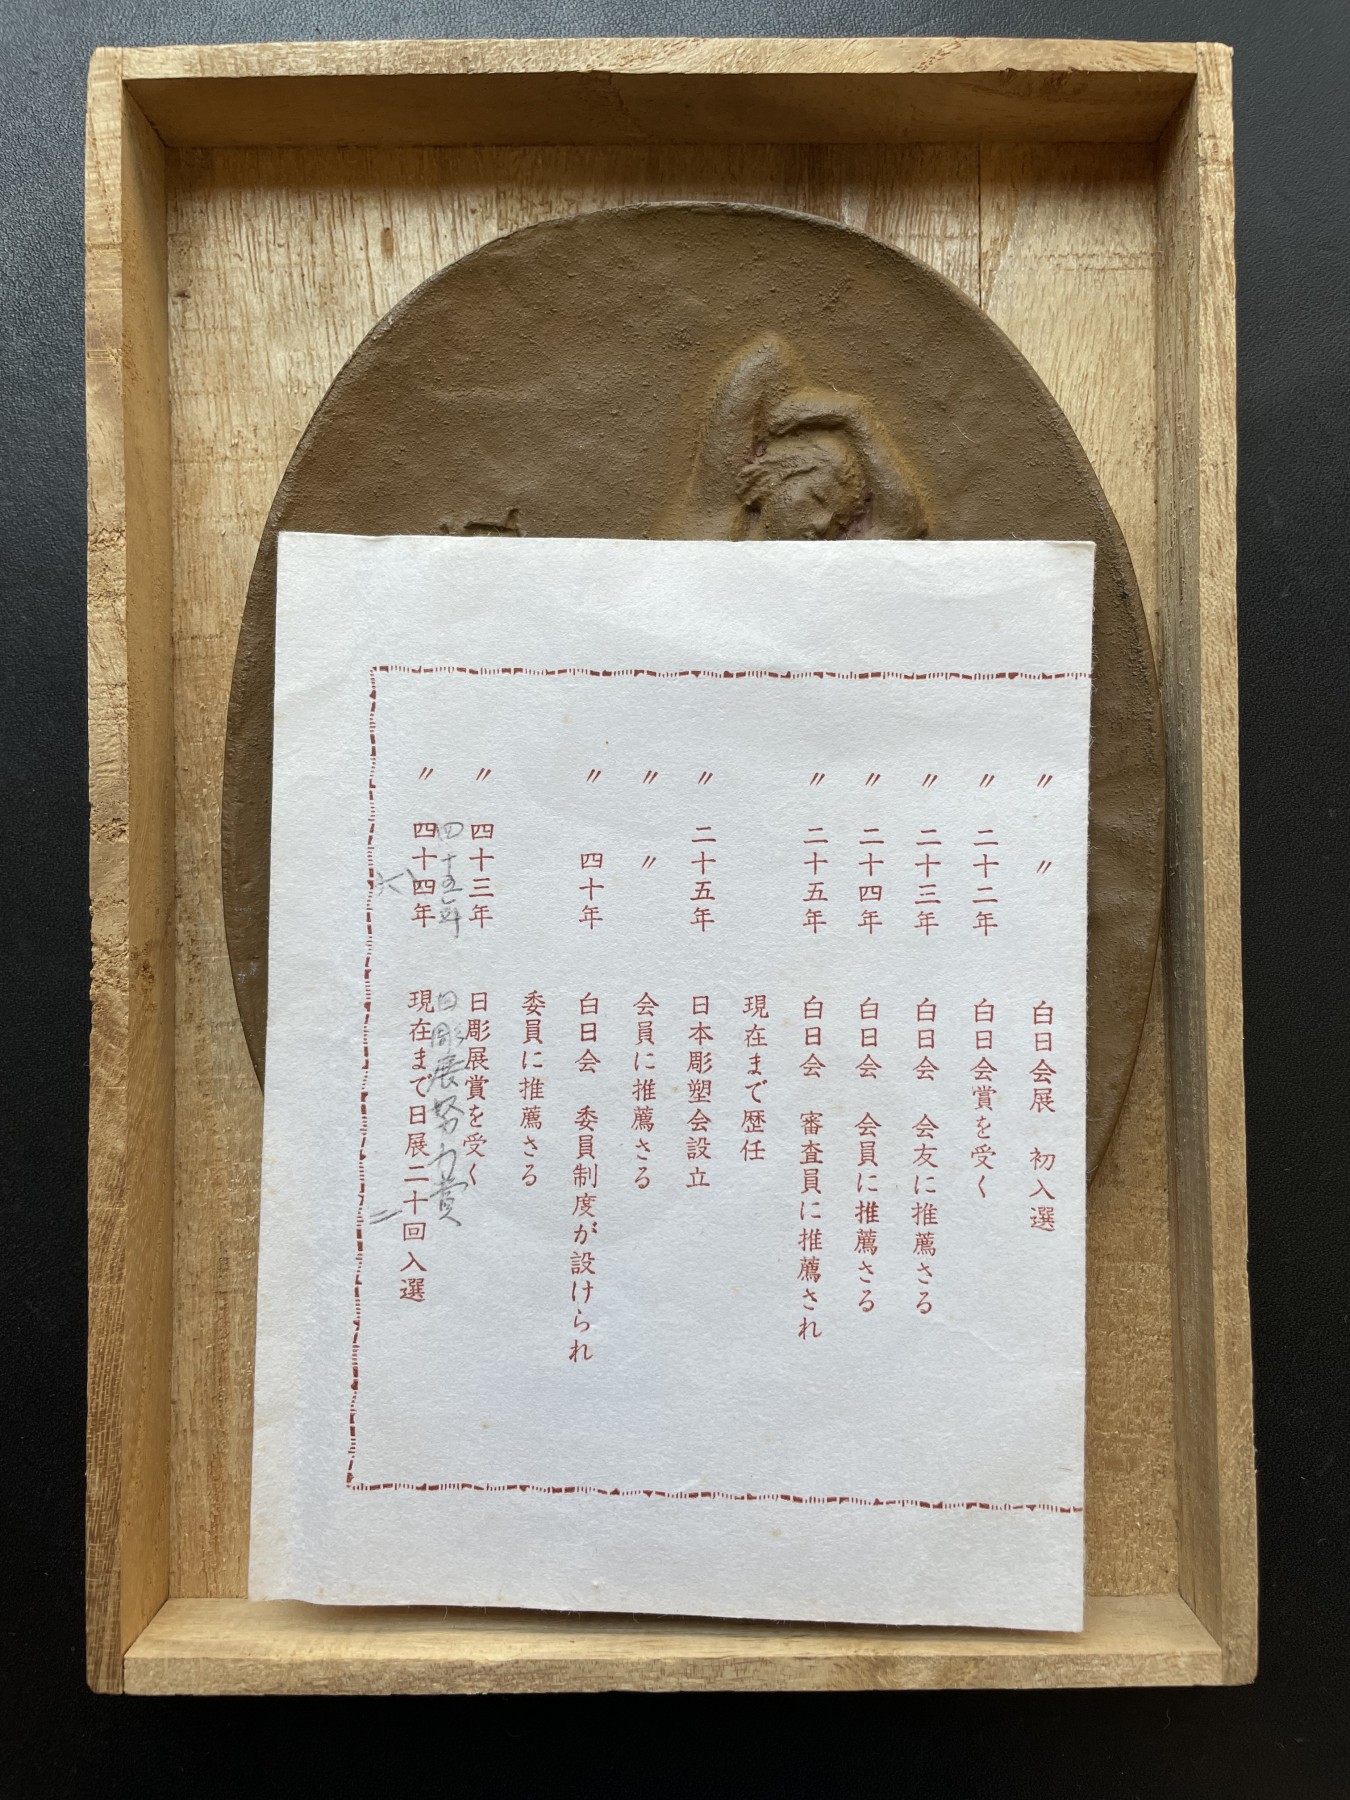 〃 〃 白日会展 初入選
〃 二十二年 白日会賞を受く
〃 二十三年 白日会 会友に推薦さる
〃 二十四年 白日会 会員に推薦さる
〃 二十五年 白日会 審査員に推薦され
現在まで歴任
〃 二十五年 日本彫塑会設立
〃 〃 会員に推薦さる
〃 四十年 白日会 委員制度が設けられ
委員に推薦さる
〃 四十三年 日彫展賞を受く
四十五年 日彫展努力賞
〃 四十四年 現在まで日展二十回入選
六
二